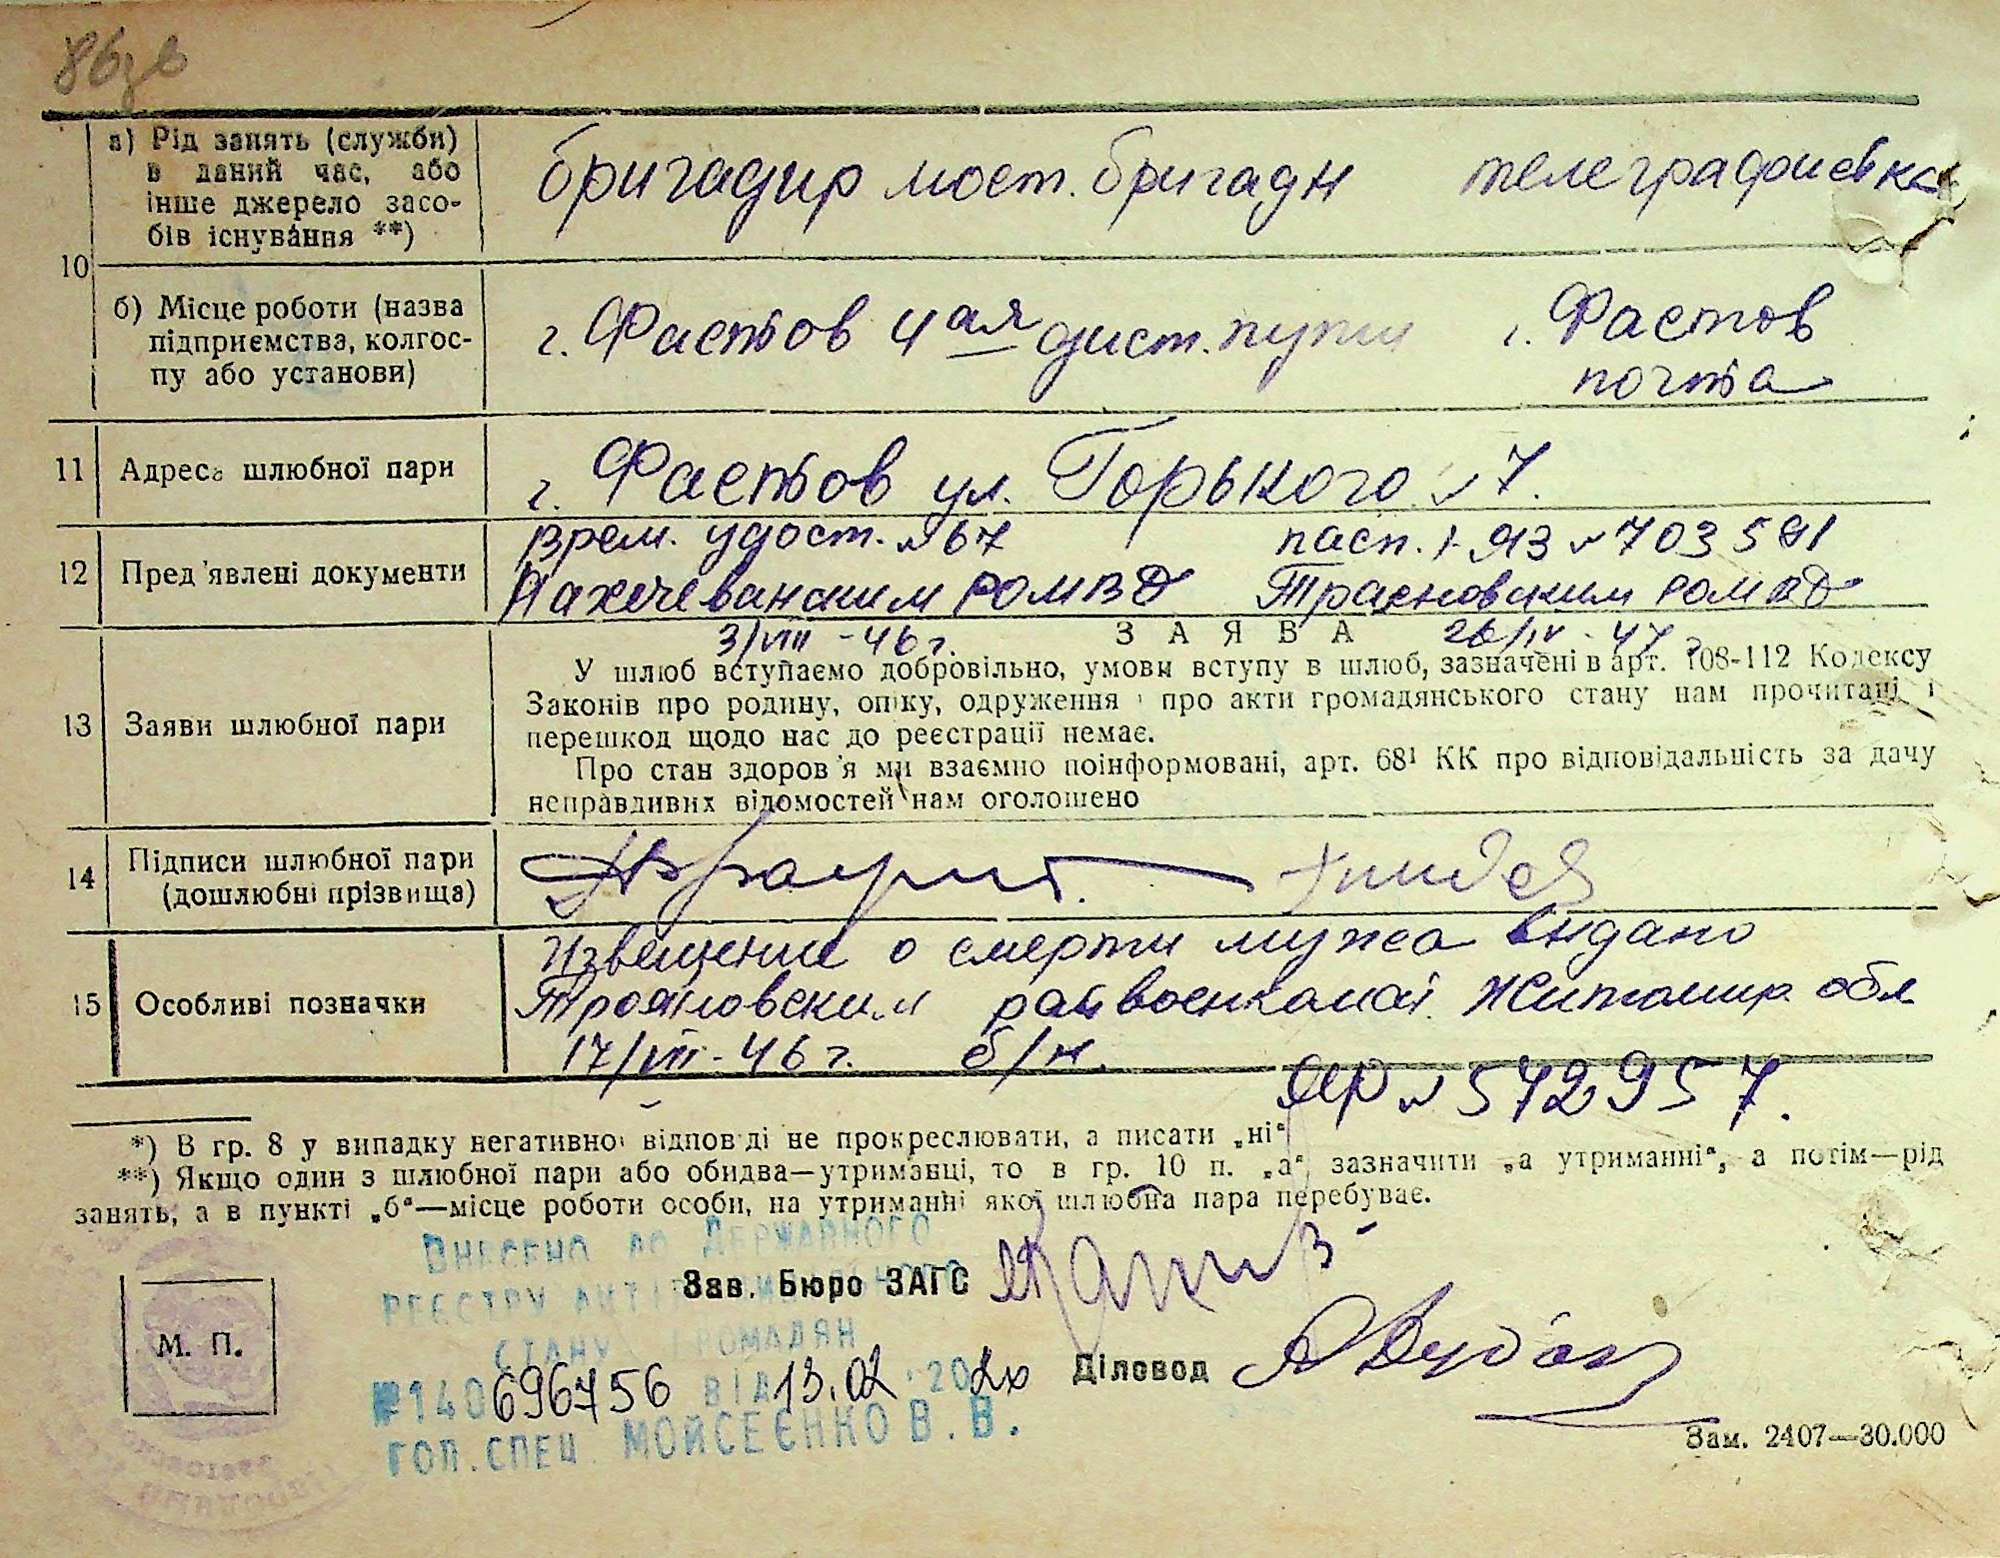 86зв
а) Рід занять (служби)
в даний час, або
інше джерело засо-
бів існування **)
бригадир мост. бригади телеграфистка
10
б) Місце роботи (назва
підприємства, колгос-
пу або установи)
г. Фастов 4ая дист. пути г. Фастов
почта
11 Адреса шлюбної пари
г. Фастов ул. Горького № 7.
12 Пред'явлені документи
Врем. удост. № 67 пасп. I-ЯЗ № 703591
Нахечеванским РОМВД РОМВД
3/VIII-46 г. 26/IV-47
ЗАЯВА
13 Заяви шлюбної пари
У шлюб вступаємо добровільно, умови вступу в шлюб, зазначені в арт. 108-112 Кодексу
Законів про родину, опіку, одруження і про акти громадянського стану нам прочитані і
перешкод щодо нас до реєстрації немає.
Про стан здоров'я ми взаємно поінформовані, арт. 68¹ КК про відповідальність за дачу
неправдивих відомостей нам оголошено
14 Підписи шлюбної пари
(дошлюбні прізвища)
15 Особливі позначки
Извещение о смерти мужа видано
Трояновским райвоенкомат. Житомир. обл
17/VII-46 г. б/н.
ЯР № 572957.
*) В гр. 8 у випадку негативної відповіді не прокреслювати, а писати „ні“
**) Якщо один з шлюбної пари або обидва—утриманці, то в гр. 10 п. „а“ зазначити „а утриманні“, а потім—рід
занять, а в пункті „б“—місце роботи особи, на утриманні якої шлюбна пара перебуває.
ВНЕСЕНО ДО ДЕРЖАВНОГО
РЕЄСТРУ АКТІВ ЦИВІЛЬНОГО
СТАНУ ГРОМАДЯН
№ 140696756 ВІД 13.02.2020
ГОЛ. СПЕЦ. МОЙСЕЄНКО В. В.
Зав. Бюро ЗАГС
М. П.
Діловод
Зам. 2407—30.000